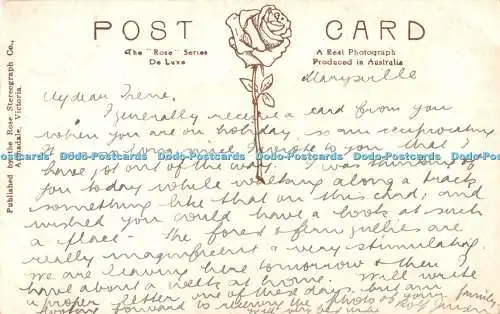 POST CARD
The "Rose" Series
De Luxe
A Real Photograph
Produced in Australia
Published by the Rose Stereograph Co.,
Armadale, Victoria.
Marysville
My dear Irene,
I generally receive a card from you
when you are on holiday, so am reciprocating.
It is so long since I wrote to you that I
have got out of the way. I was thinking of
you today while walking along a track
something like that on this card, and
wished you could have a look at such
a place - the forest & fern gullies are
really magnificent & very stimulating.
We are leaving here tomorrow & then I
have about a week at home. Will write
a proper letter one of these days, but am
looking forward to seeing the photo of your family.
Dodo-Postcards Dodo-Postcards Dodo-Postcards Dodo-Postcards Dodo-Postcards